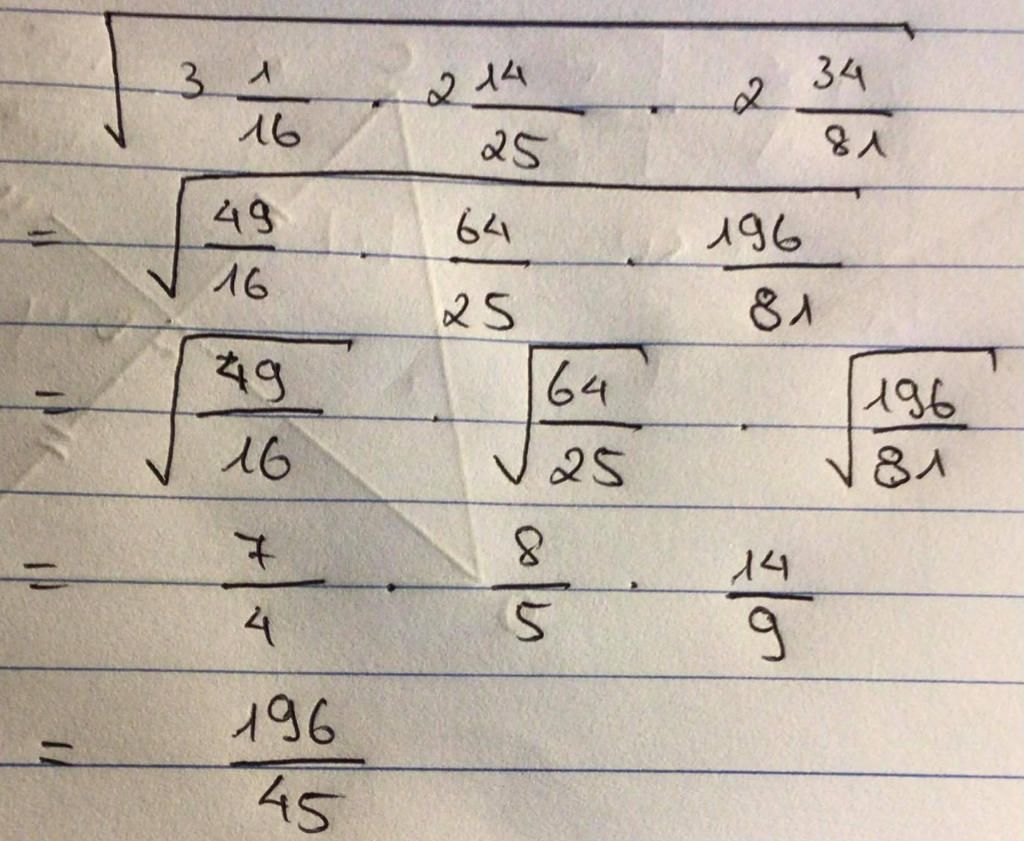 √(3 1/16 · 2 14/25 · 2 34/81)
= √(49/16 · 64/25 · 196/81)
= √(49/16) · √(64/25) · √(196/81)
= 7/4 · 8/5 · 14/9
= 196/45